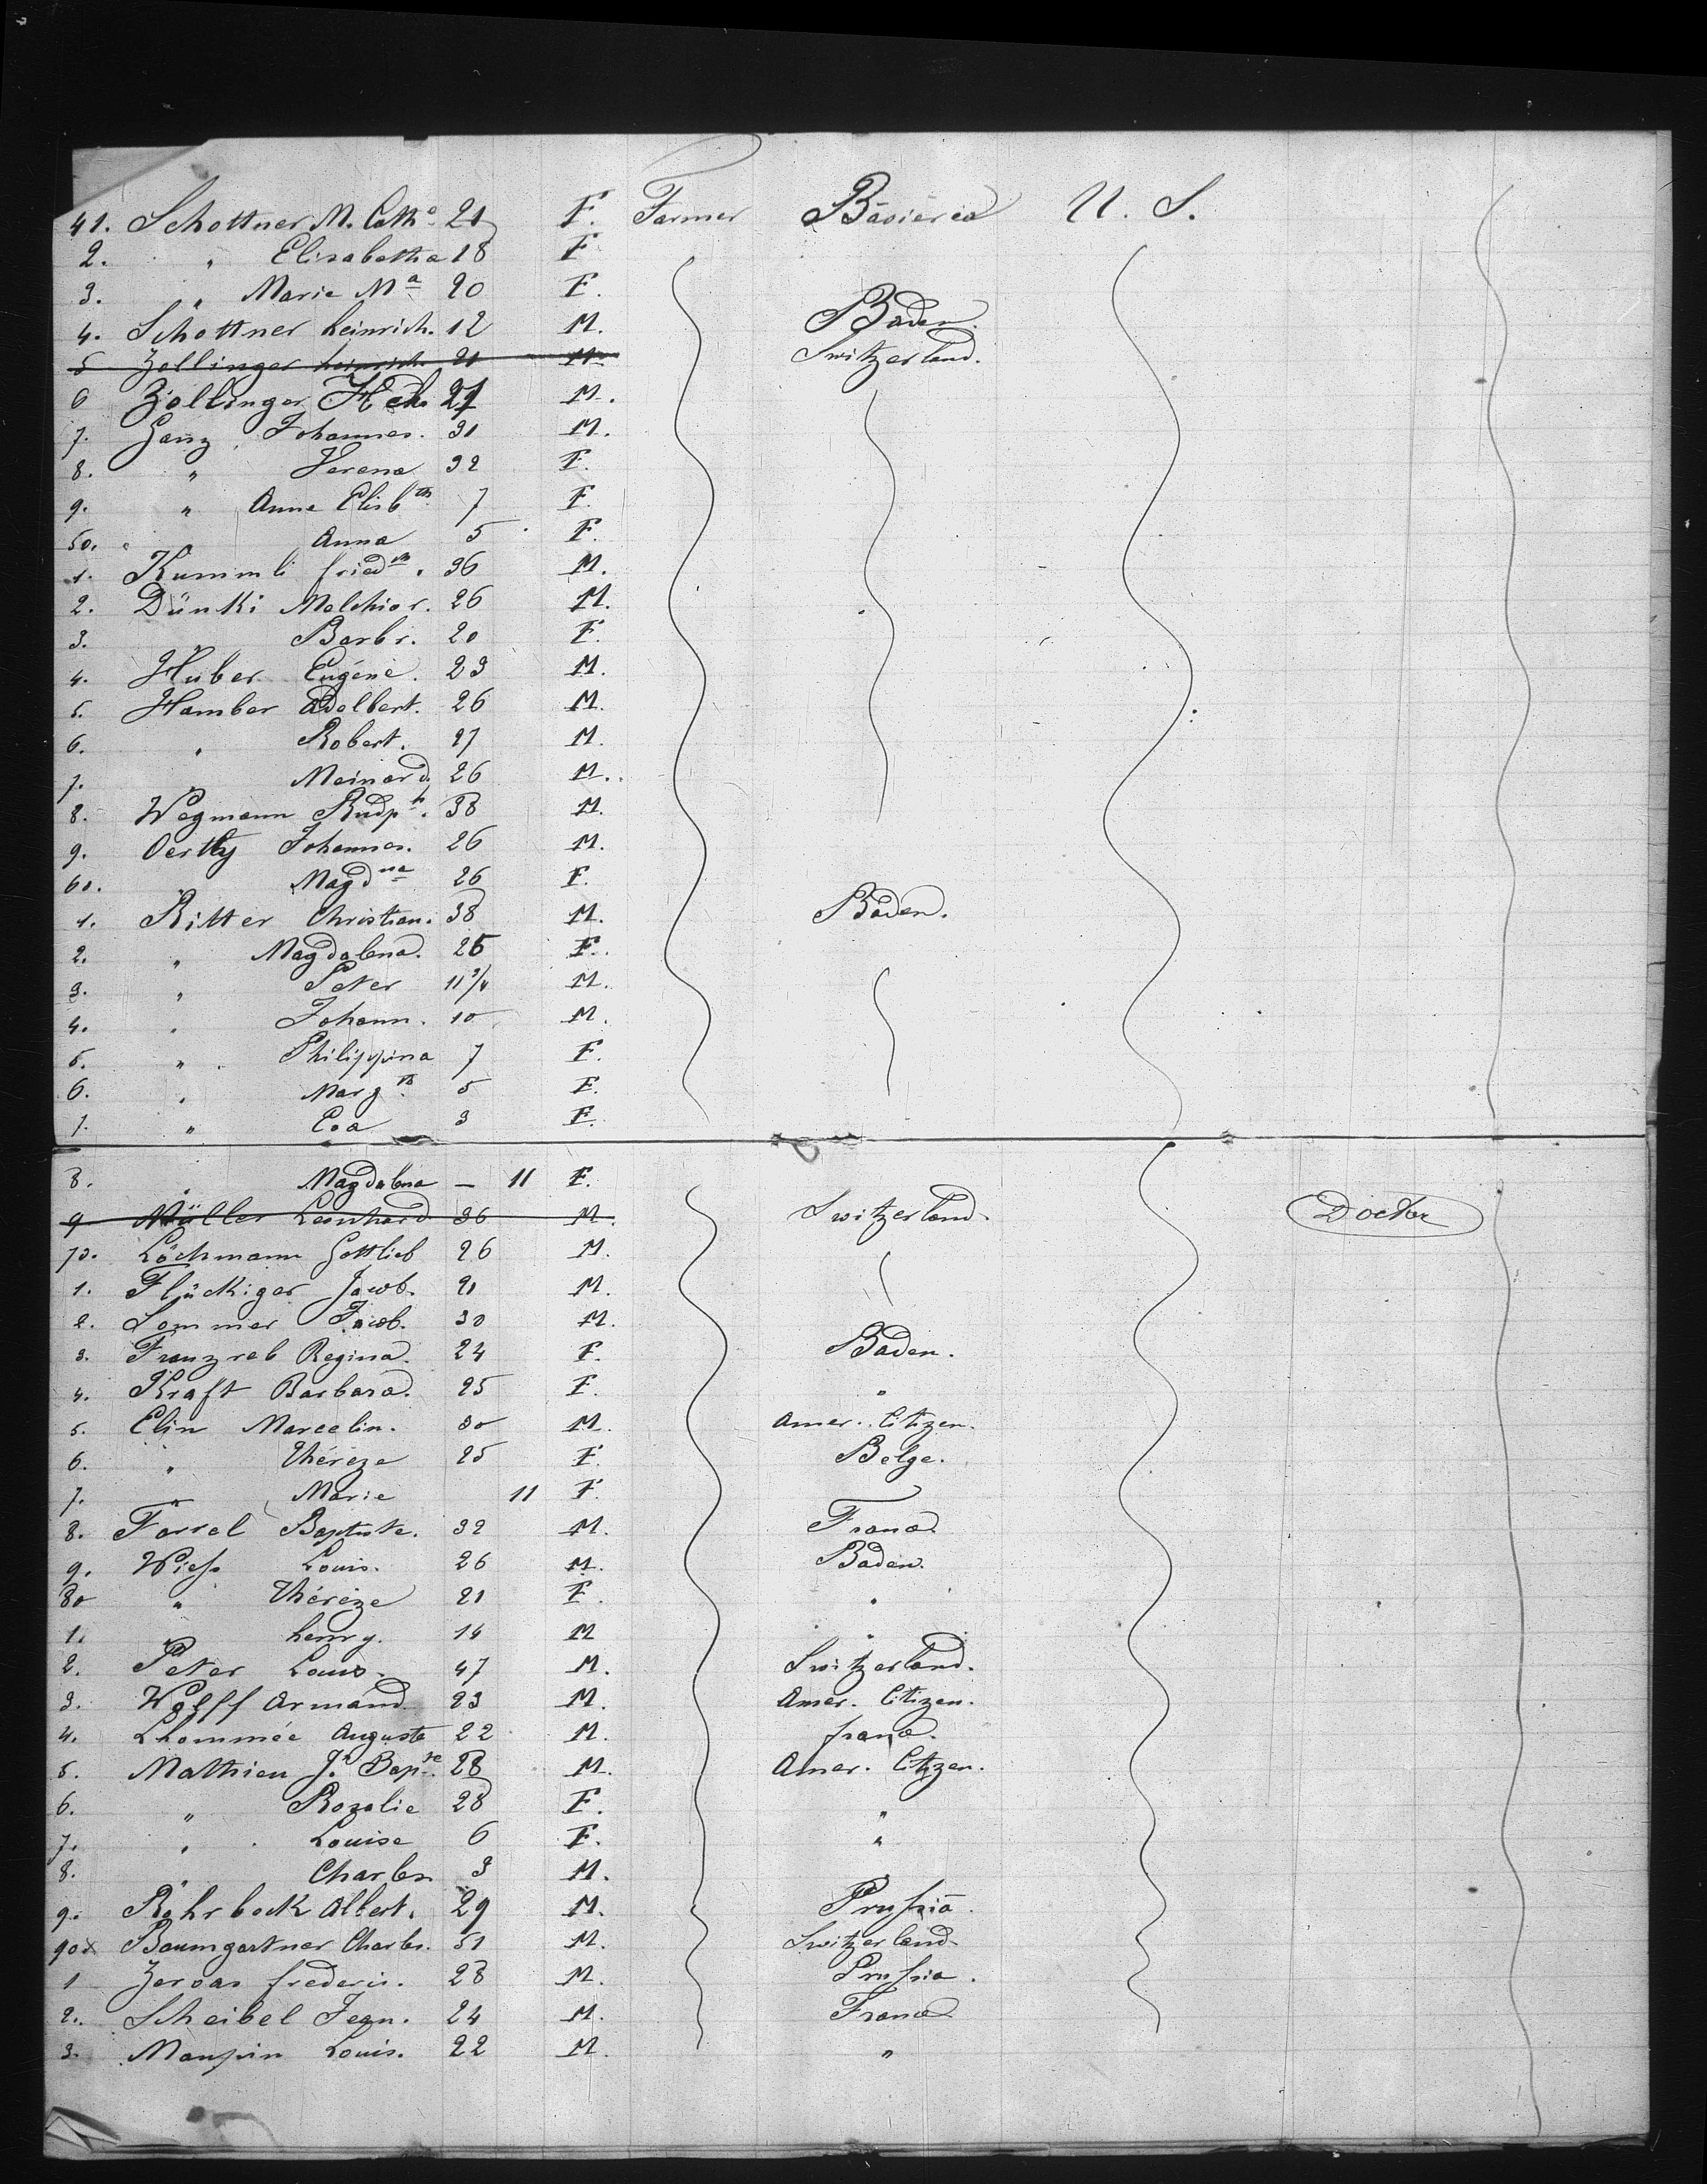 41. Schottner M. Cath<sup>a</sup> 21 F. Farmer Bavière U. S.
2. " Elisabetha 18 F
3. " Marie M<sup>a</sup> 20 F.
4. Schottner heinrich. 12 M. Baden.
5 Zollinger heinrich 21 M. Switzerland.
6 Zollinger Hch 21 M.
7. Ganz Johannes. 31 M.
8. " Verena 32 F.
9. " Anne Elisb<sup>th</sup> 7 F.
50. " Anna 5 F.
1. Kummli fried<sup>ch</sup>. 36 M.
2. Dünki Melchior. 26 M.
3. " Barbr. 20 F.
4. Huber Eugéne. 23 M.
5. Hamber Adelbert. 26 M.
6. " Robert. 27 M.
7. Meinard. 26 M.
8. Wegmann Rudp<sup>h</sup>. 38 M.
9. Oertly Johannes. 26 M.
60. " Magd<sup>na</sup> 26 F.
1. Ritter Christian. 38 M. Baden.
2. " Magdalena. 26 F.
3. " Peter 11 3/4 M.
4. " Johann. 10 M.
5. " Philippina 7 F.
6. " Marg<sup>th</sup> 5 F.
7. " Eva 3 F.
8. " Magdalena — 11 F.
9 Müller Leonhard 36 M. Switzerland. Doctor
70. Löchmann Gottlieb 26 M.
1. Flückiger Jacob. 21 M.
2. Sommer Jacob. 30 M.
3. Franzreb Regina. 24 F. Baden.
4. Kraft Barbara. 25 F. "
5. Elin Marcelin. 30 M. Amer. Citizen.
6. " Théréze 25 F. Belge.
7. " Marie 11 F.
8. Farrel Baptiste. 32 M. France
9. Wiess Louis. 26 M. Baden.
80 " Théréze 21 F. "
1. " henry. 14 M "
2. Peter Louis. 47 M. Switzerland.
3. Wolff Armand. 23 M. Amer. Citizen.
4. Lhommée Auguste 22 M. france.
5. Mathieu J<sup>n</sup> Bap<sup>te</sup>. 28 M. Amer. Citizen.
6. " Rozalie 28 F. "
7. " Louise 6 F. "
8. " Charles 3 M.
9. Rohrbeck Albert. 29 M. Prussia.
90 x Baumgartner Charles. 51 M. Switzerland.
1 frederic. 28 M. Prussia.
2. Scheibel Jean. 24 M. France
3. Maupin Louis. 22 M. "